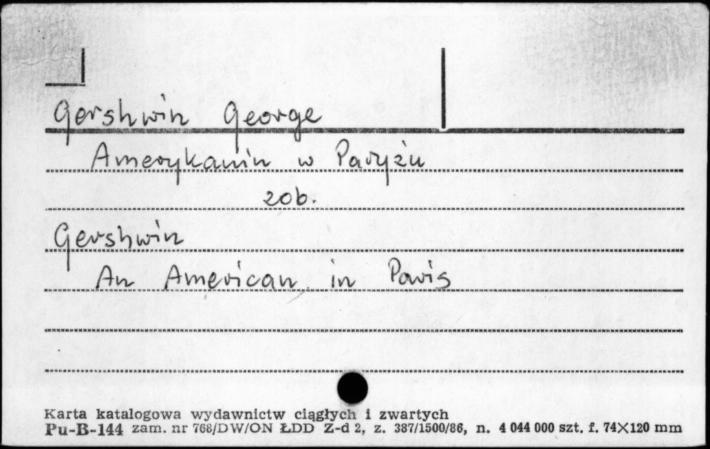 Gershwin George
Amerykanin w Paryżu
zob.
Gershwin
An American in Paris
Karta katalogowa wydawnictw ciągłych i zwartych
Pu-B-144 zam. nr 768/DW/ON ŁDD Z-d 2, z. 387/1500/86, n. 4 044 000 szt. f. 74×120 mm